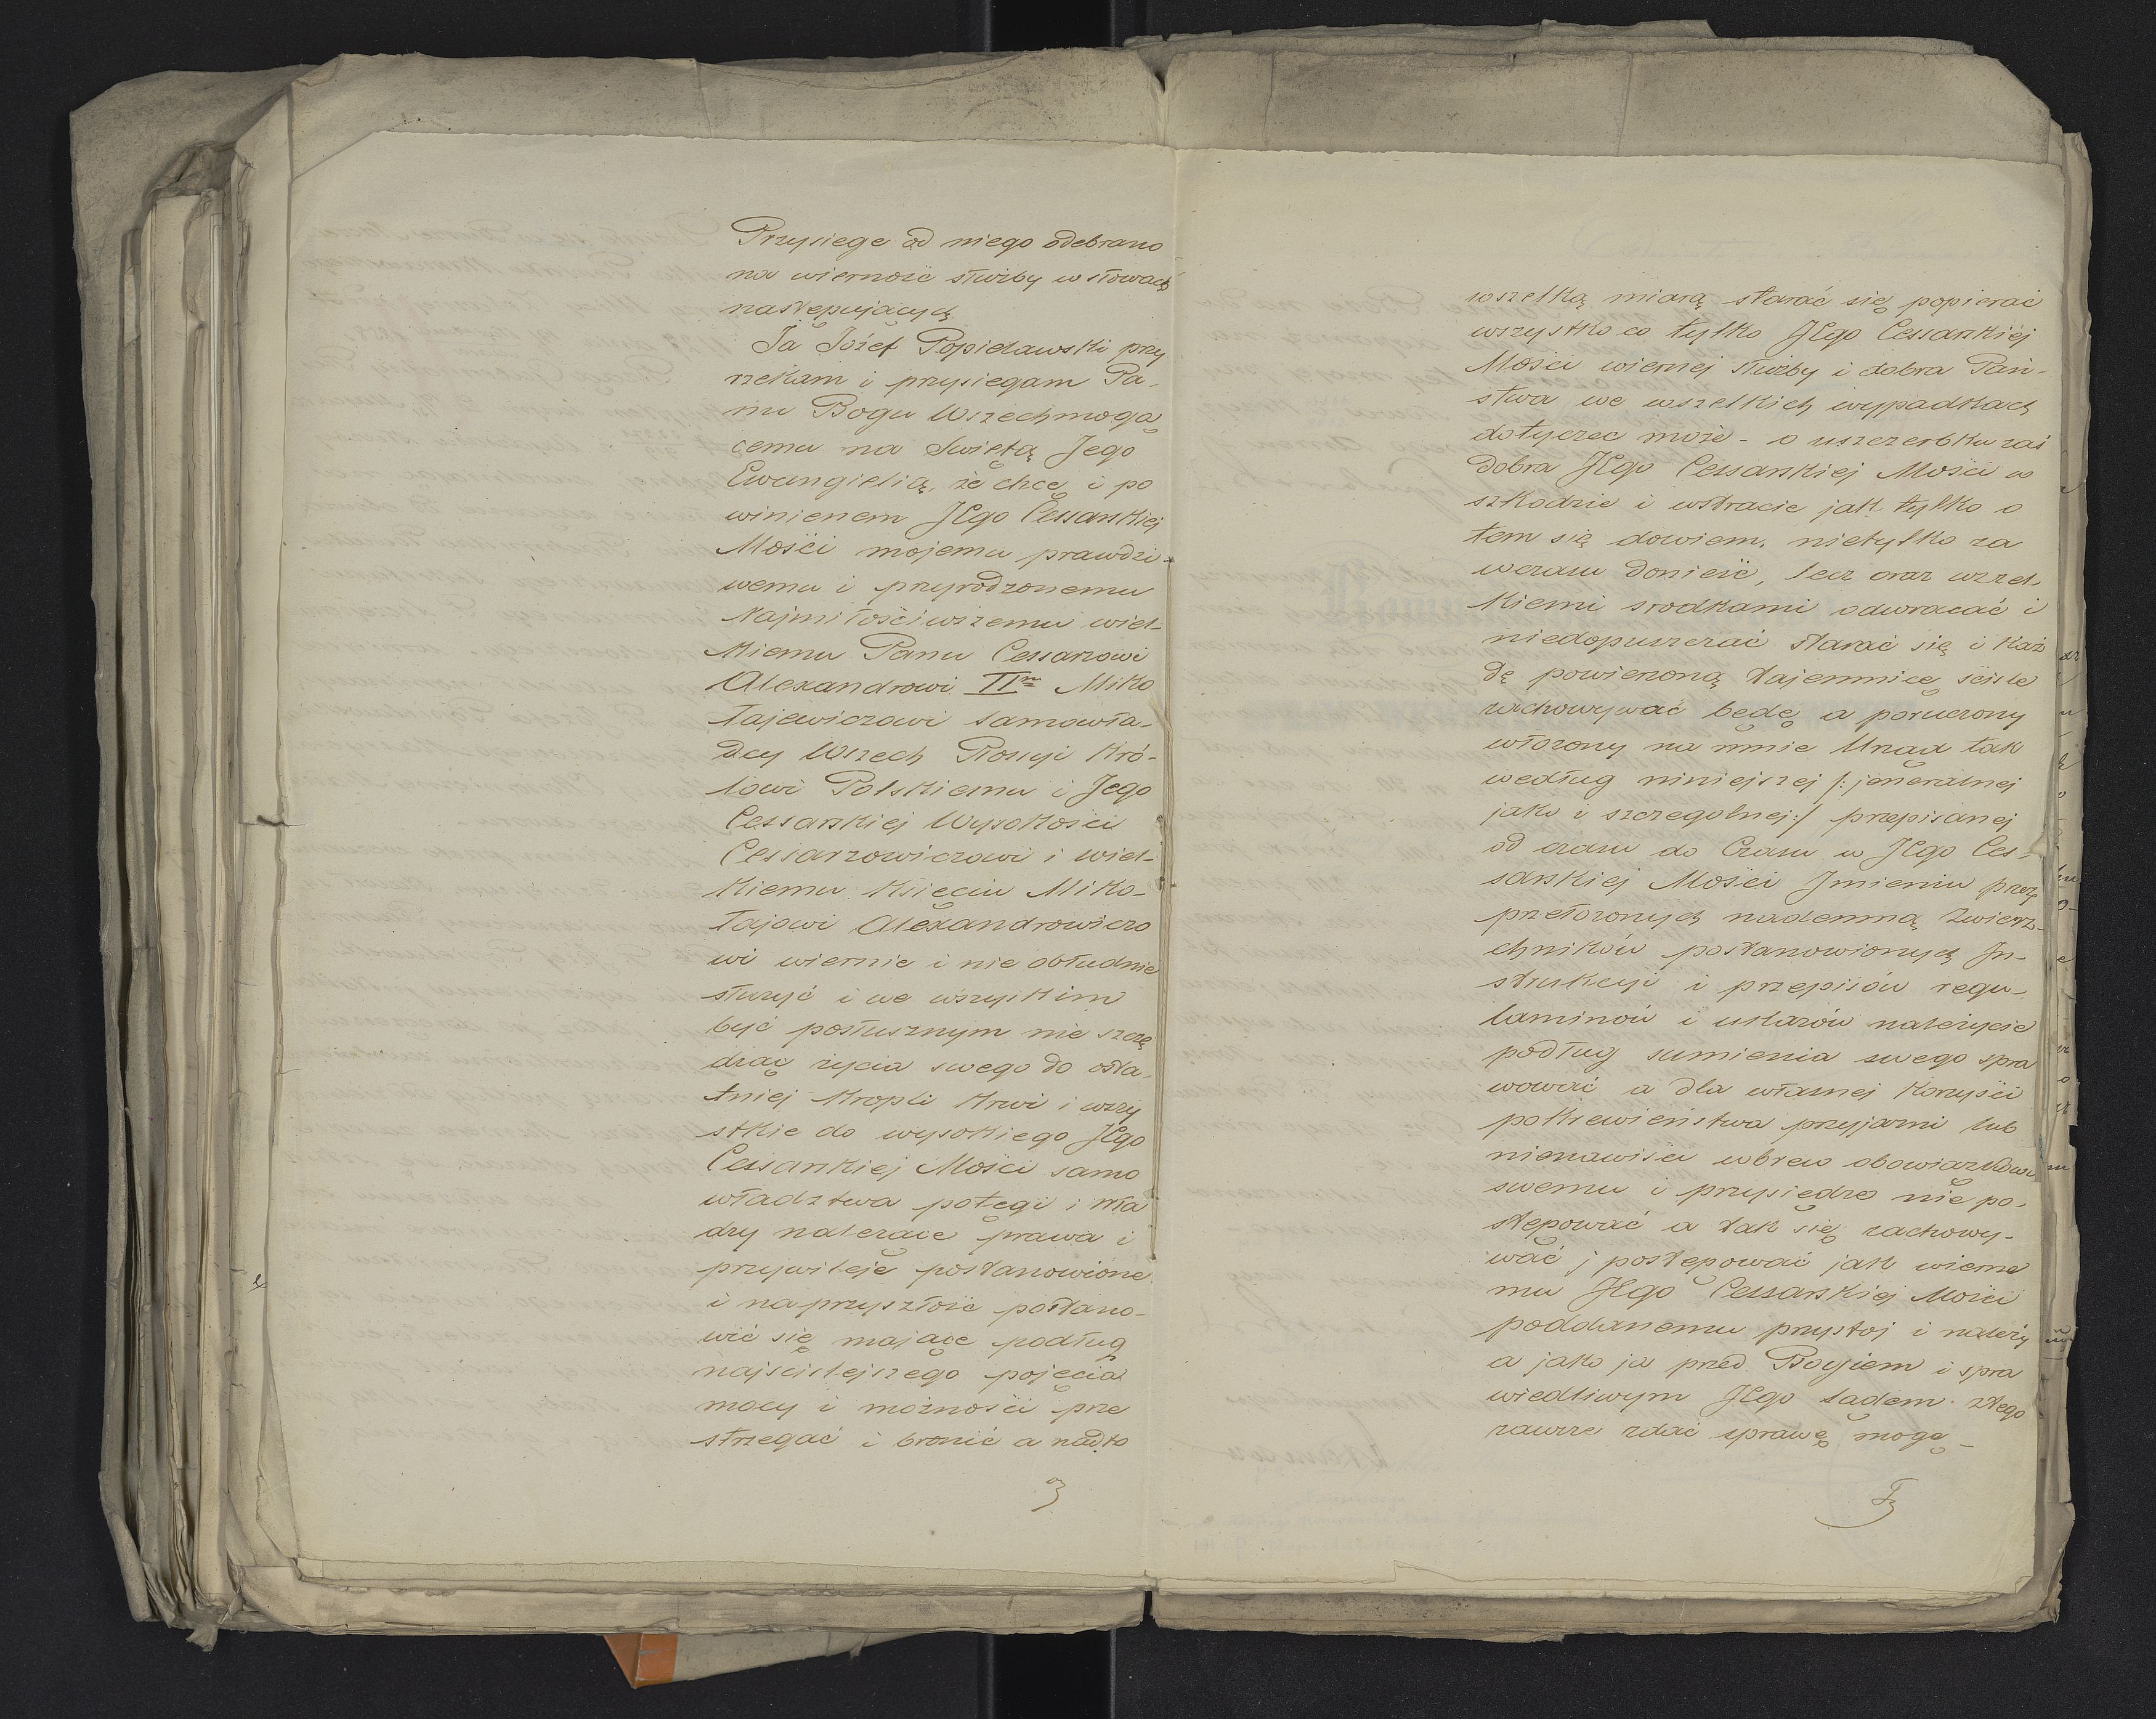 Przysięgę od niego odebrano
na wierność służby w słowach
następujących
Ja Józef Popielawski przy
rzekam i przysięgam Pa-
nu Bogu Wszechmogą
cemu na Świętą Jego
Ewangielią, że chcę i po
winienem JEgo Cessarskiej
Mości mojemu prawdzi-
wemu i przyrodzonemu
Najmiłościwszemu wiel-
kiemu Panu Cessarzowi
Alexandrowi IIm Miko
łajewiczowi samowła-
dcy Wszech Rossyi Kró-
lowi Polskiemu i Jego
Cessarskiej Wysokości
Cessarzowiczowi i wiel-
kiemu Księciu Miko-
łajowi Alexandrowiczo
wi wiernie i nie obłudnie
służyć i we wszystkim
być posłusznym nie szczę
dząc życia swego do osta-
tniej kropli krwi i wszy
stkie do wysokiego JEgo
Cessarskiej Mości samo
władztwa potęgi i wła
dzy należące prawa i
przywileje postanowione
i naprzyszłość postano-
wić się mające podług
najściślejszego pojęcia
mocy i możności prze
strzegać i bronić a nadto
wszelką miarą starać się popierać
wszystko co tylko JEgo Cessarskiéj
Mości wiernej służby i dobra Pań-
stwa we wszelkich wypadkach
dotyczec może - o uszczerbku zaś
dobra JEgo Cessarskiej Mości w
szkodzie i wstracie jak tylko o
tem się dowiem, nietylko za
wczasu donieść, lecz oraz wszel-
kiemi srodkami odwracać i
niedopuszczać starać się i każ
dę powierzoną tajemnicę ściśle
zachowywać będę a poruczony
włożony na mnie Urząd tak
według niniejszej /: jeneralnej
jako i szczegolnej:/ przepisanej
od czasu do Czasu w JEgo Ces-
sarskiej Mości Jmieniu przez
przełożonych nademną Zwierz-
chników postanowionych In-
strukcyi i przepisów regu-
laminów i ustazów należycie
podług sumienia swego spra
wować a dla własnej korzyści
pokrewieństwa przyjazni lub
nienawiści wbrew obowiązkowi
swemu i przysiędze nie po-
stępować a tak się zachowy-
wać j postępować jak wierne
mu JEgo Cessarskiej Mości
poddanemu przystoj i należy
a jako ja przed Bogiem i spra
wiedliwym JEgo sądem. ztego
zawsze zdać sprawę mogę -